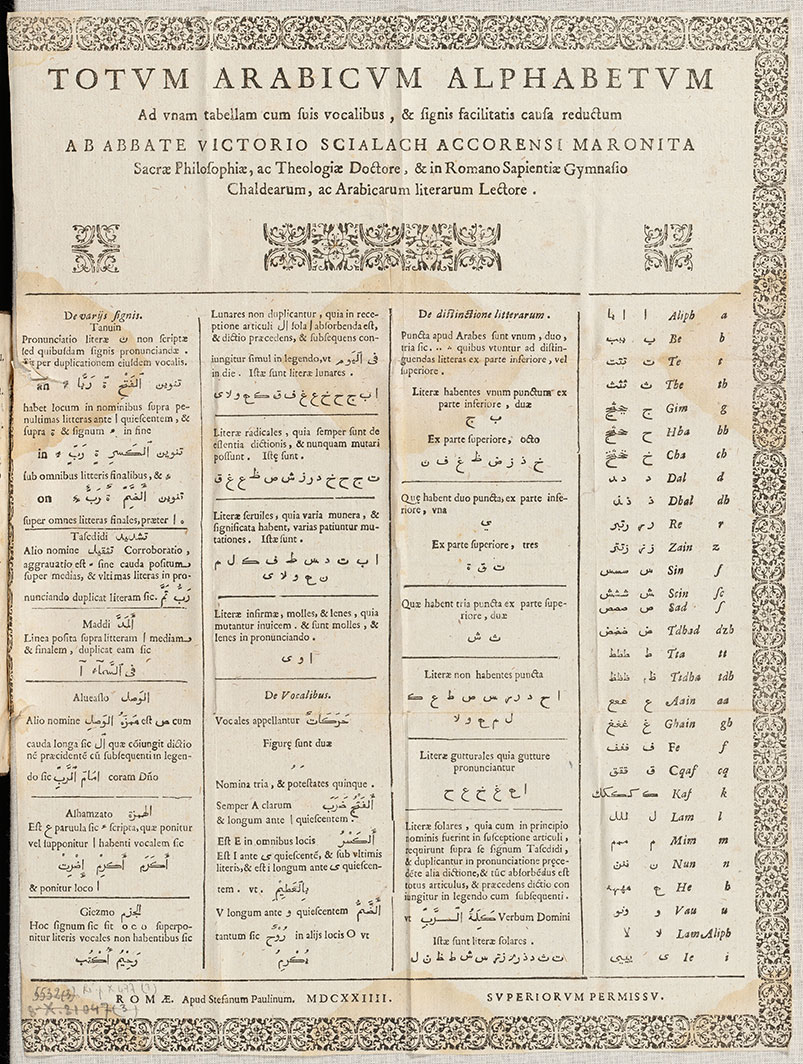 TOTVM ARABICVM ALPHABETVM
Ad vnam tabellam cum suis vocalibus, & signis facilitatis causa reductum
AB ABBATE VICTORIO SCIALACH ACCORENSI MARONITA
Sacræ Philosophiæ, ac Theologiæ Doctore, & in Romano Sapientiæ Gymnasio
Chaldearum, ac Arabicarum literarum Lectore.
De varijs signis.
Tanuin
Pronunciatio literæ ن non scriptæ
sed quibusdam signis pronunciandæ.
Fit per duplicationem eiusdem vocalis.
an
تنوين
habet locum in nominibus supra pe-
nultimas litteras ante ا quiescentem, &
supra ة & signum ء in fine
in تنوين
sub omnibus litteris finalibus, &
on تنوين
super omnes litteras finales, præter ا ء
Tascdidi تشديد
Alio nomine تثقيل Corroboratio,
aggrauatio est sine cauda positum
super medias, & vltimas literas in pro-
nunciando duplicat literam sic. رَبُّ
Maddi اَلْمَدّ
Linea posita supra litteram ا mediam
& finalem, duplicat eam sic
فى السَّمآءِ آ
Aluesslo الوصل
Alio nomine هَمْزَة الوَصْلِ est ص cum
cauda longa sic آل quæ cōiungit dictio
nē præcidentē cū subsequenti in legen-
do sic اِمَامَ الرَّبِّ coram Dn̄o
Alhamzato الهمزة
Est ع paruula sic ء scripta, quæ ponitur
vel supponitur ا habenti vocalem sic
أَكَرَم أَكْرِمْ إِضْرِبْ
& ponitur loco ا
Giezmo الجزم
Hoc signum sic fit o c o superpo-
nitur literis vocales non habentibus sic
أُكْتُبْ
Lunares non duplicantur, quia in rece-
ptione articuli آل sola ا absorbenda est,
& dictio præcedens, & subsequens con-
iungitur simul in legendo, vt فى اَلْيَوْمِ
in die. Istæ sunt literæ lunares.
ا ب ج ح خ ع غ ف ق ك م و لا ى
Literæ radicales, quia semper sunt de
essentia dictionis, & nunquam mutari
possunt. Istę sunt.
ث ج ح خ د ر ز ش ص ظ ع غ ق
Literæ seruiles, quia varia munera, &
significata habent, varias patiuntur mu-
tationes. Istæ sunt.
ا ب ت د س ط ف ك ل م
ن ه و لا ى
Literæ infirmæ, molles, & lenes, quia
mutantur inuicem. & sunt molles, &
lenes in pronunciando.
ا و ى
De Vocalibus.
Vocales appellantur حَرَكَاتٌ
Figurę sunt duæ
Nomina tria, & potestates quinque.
Semper A clarum اَلْفَتْحُ ضَرَبَ
& longum ante ا quiescentem
Est E in omnibus locis اَلْكَسْرُ
Est I ante ى quiescentē, & sub vltimis
literis, & est i longum ante ى quiescen-
tem. vt. بِالْعَظِيمِ
V longum ante و quiescentem اَلضَّمُّ
tantum sic رُوحُ in alijs locis O vt
يُكْرِمُ
De distinctione litterarum.
Puncta apud Arabes sunt vnum, duo,
tria sic. quibus vtuntur ad distin-
guendas litteras ex parte inferiore, vel
superiore.
Literæ habentes vnum punctum ex
parte inferiore, duæ
ب ج
Ex parte superiore, octo
خ ذ ز ض ظ غ ف ن
Quę habent duo puncta, ex parte infe-
riore, vna
ي
Ex parte superiore, tres
ت ق ة
Quæ habent tria puncta ex parte supe-
riore, duæ
ث ش
Literæ non habentes puncta
ا ح د ر س ص ط ع ك
ل م ه و لا
Literæ gutturales quia gutture
pronunciantur
ا ع غ خ ه ح
Literæ solares, quia cum in principio
nominis fuerint in susceptione articuli,
requirunt supra se signum Tascdidi,
& duplicantur in pronunciatione pręce-
dēte alia dictione, & tūc absorbēdus est
totus articulus, & præcedens dictio con
iungitur in legendo cum subsequenti.
vt كَلِمَةُ الــرَّبِّ Verbum Domini
Istæ sunt literæ solares.
ت ث د ذ ر ز س ش ص ض ط ظ ن ل
ا ا Aliph a
ببب ب Be b
تتت ت Te t
ثثث ث The th
ججج ج Gim g
ححح ح Hha hh
خخخ خ Cha ch
د د Dal d
ذ ذ Dhal dh
ر Re r
ز Zain z
سسس س Sin s
ششش ش Scin sc
صصص ص Sad s
ضضض ض Tdhad dzh
ططط ط Tta tt
ظظظ ظ Ttdha tdh
ععع ع Aain aa
غغغ غ Ghain gh
ففف ف Fe f
ققق ق Cqaf cq
ككك ك Kaf k
للل ل Lam l
ممم م Mim m
ننن ن Nun n
ههه ه He h
و و Vau u
لا لا LamAliph
ييي ى Ie i
ROMÆ. Apud Stefanum Paulinum. MDCXXIIII. SVPERIORVM PERMISSV.
5532(3)
X.21047(3)